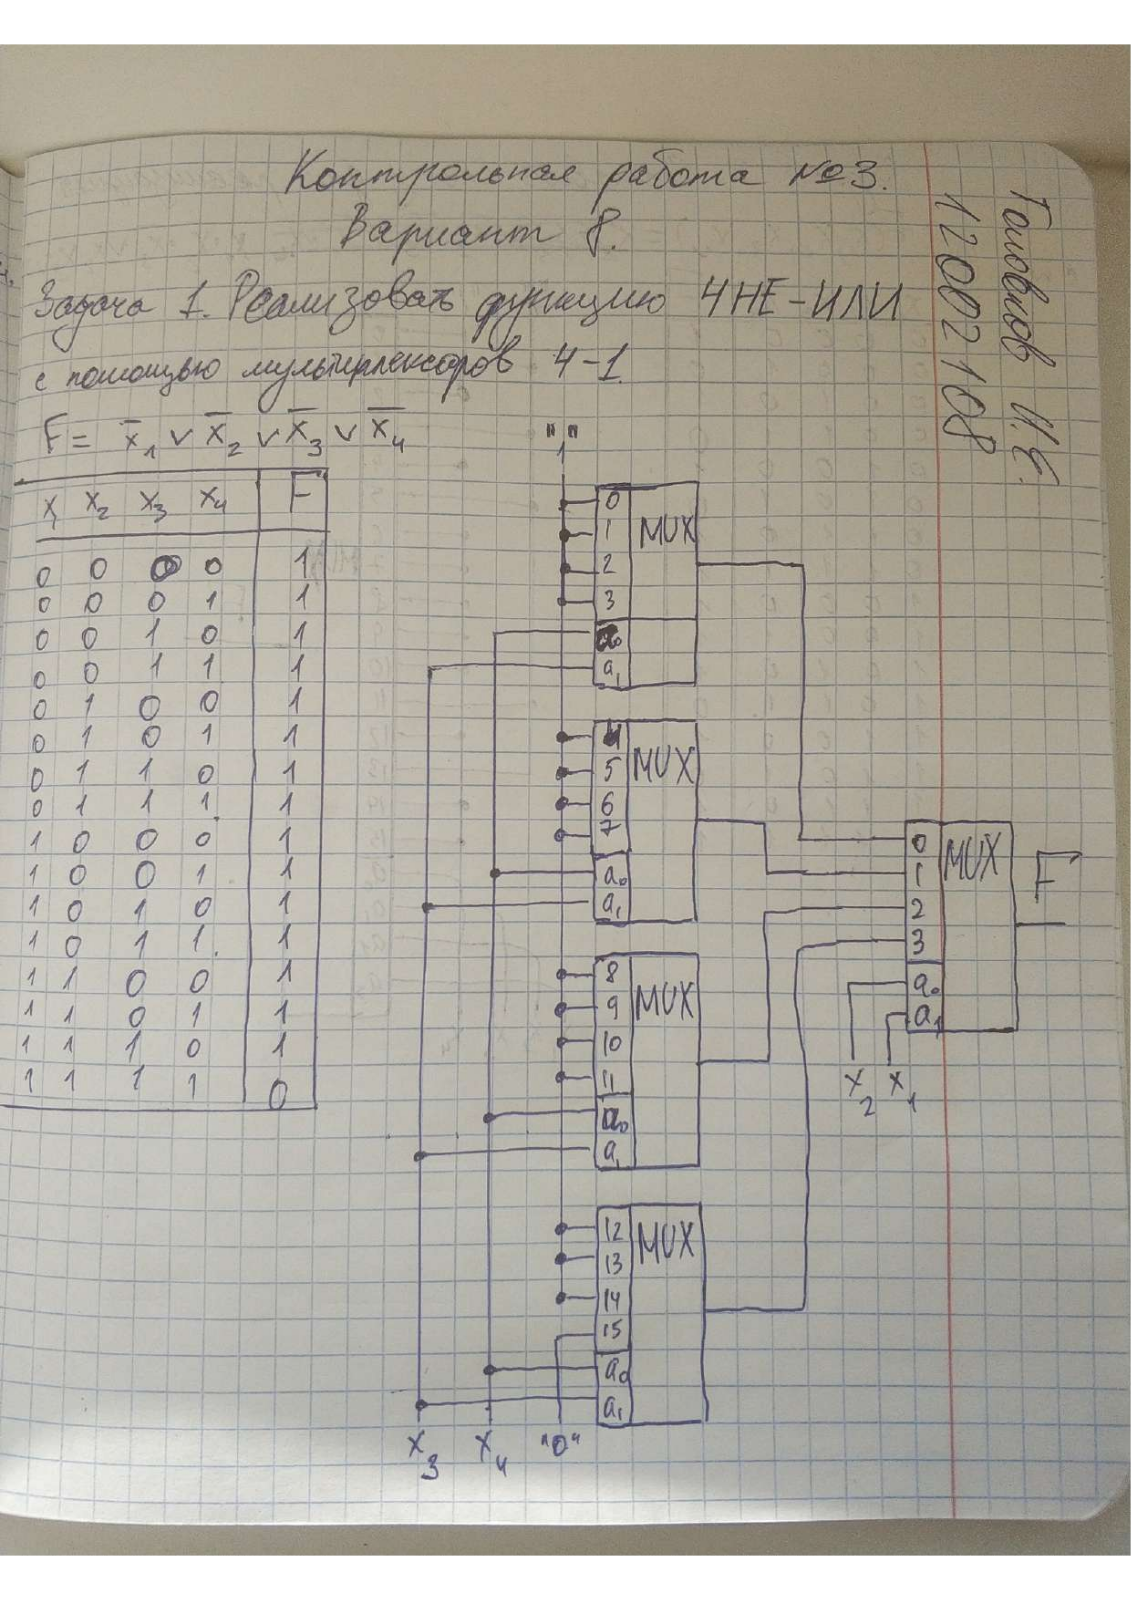 Контрольная работа №3.
Вариант 8.
Головков И.Е.
12002108
Задача 1. Реализовать функцию 4НЕ-ИЛИ
с помощью мультиплексоров 4-1.
F = x̄₁ ∨ x̄₂ ∨ x̄₃ ∨ x̄₄
x₁ x₂ x₃ x₄ F
0 0 0 0 1
0 0 0 1 1
0 0 1 0 1
0 0 1 1 1
0 1 0 0 1
0 1 0 1 1
0 1 1 0 1
0 1 1 1 1
1 0 0 0 1
1 0 0 1 1
1 0 1 0 1
1 0 1 1 1
1 1 0 0 1
1 1 0 1 1
1 1 1 0 1
1 1 1 1 0
"1"
0 MUX
1
2
3
a₀
a₁
4 MUX
5
6
7
a₀
a₁
8 MUX
9
10
11
a₀
a₁
12 MUX
13
14
15
a₀
a₁
x₃ x₄ "0"
0 MUX F
1
2
3
a₀
a₁
x₂ x₁